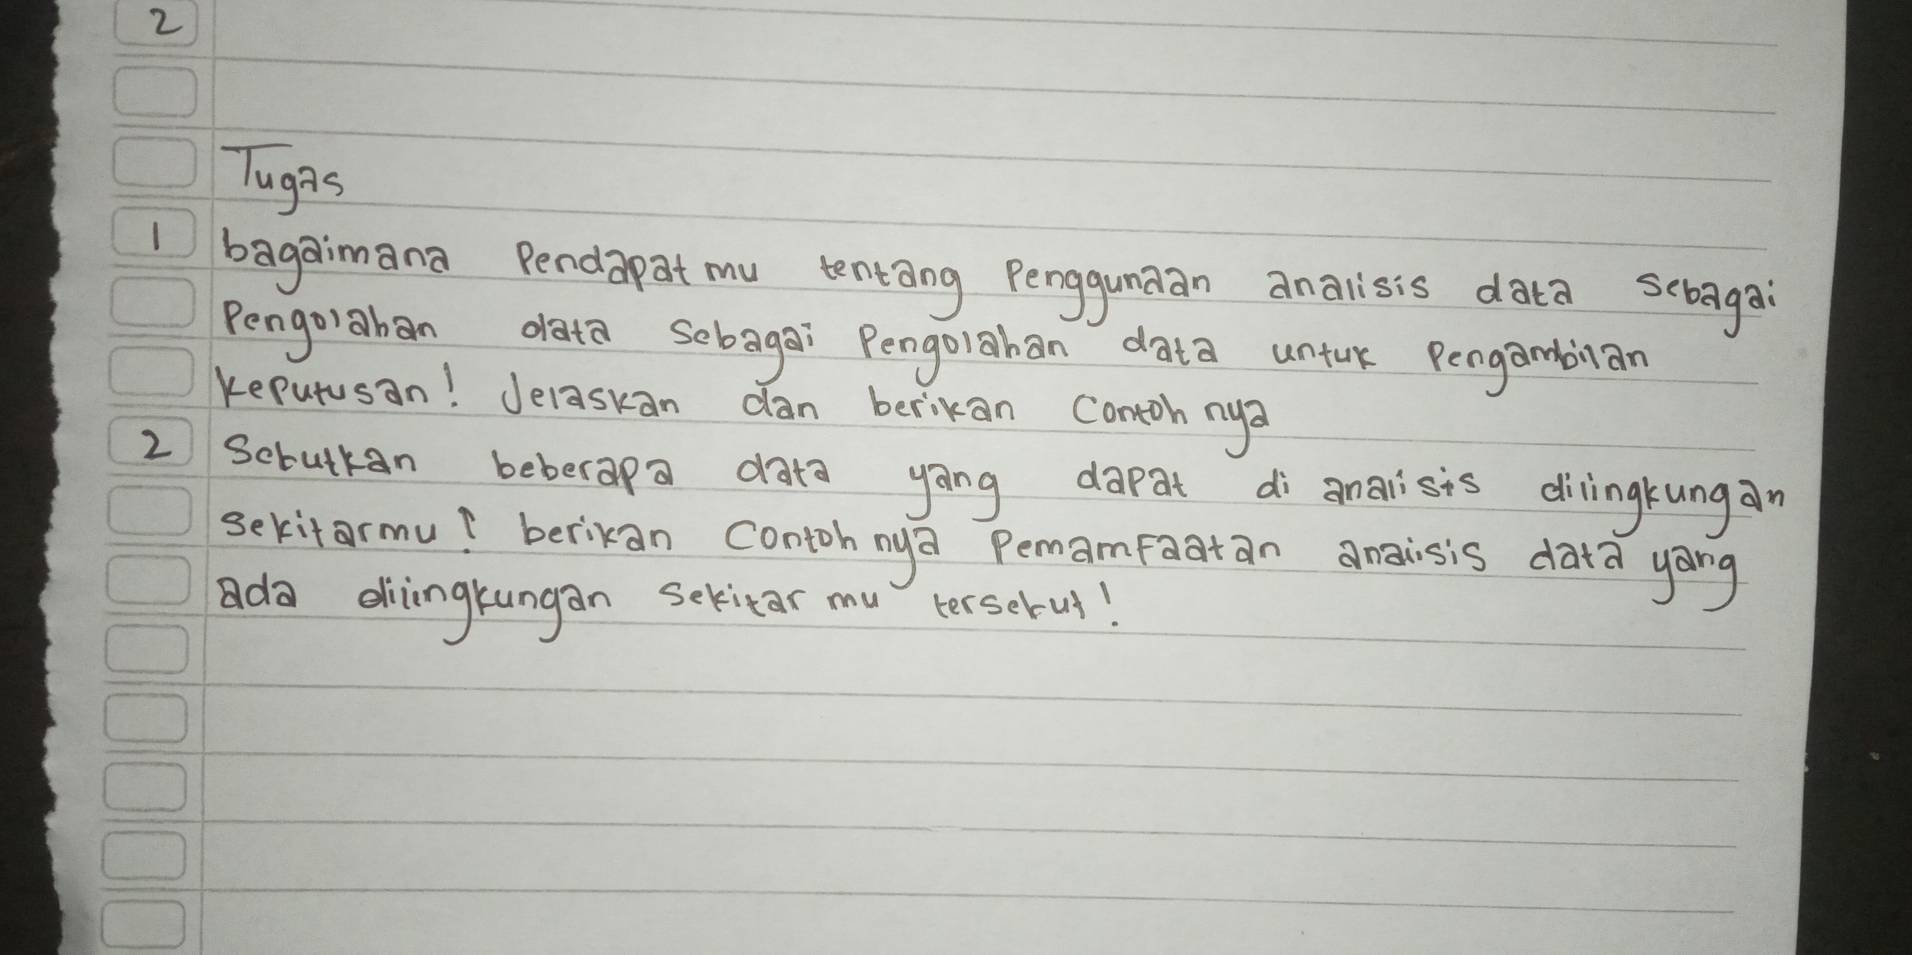 2
Tugas
1 bagaimana Pendapat mu tentang Penggunaan analisis data sebagai
Pengolahan data sebagai Pengolahan data untuk Pengambilan
keputusan! Jelaskan dan berikan Contoh nya
2 Sebutkan beberapa data yang dapat di analisis dilingkungan
sekitarmu? berikan Contoh nya Pemamfaatan analisis data yang
ada dilingkungan sekitar mu tersebut!